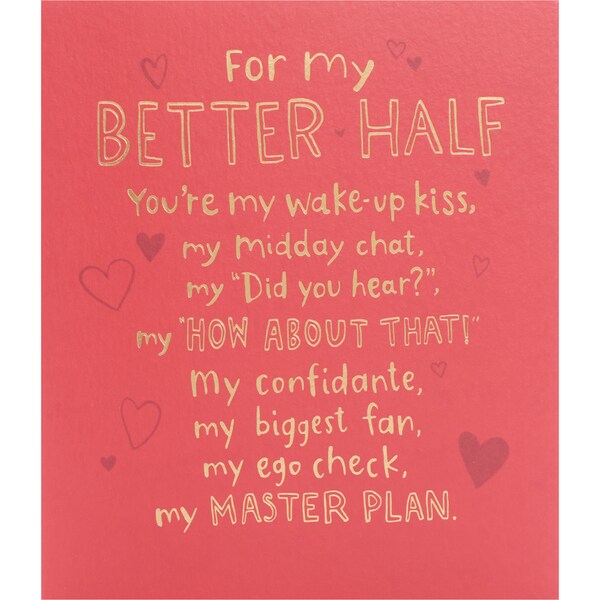 For my
BETTER HALF
You're my wake-up kiss,
my midday chat,
my "Did you hear?",
my "HOW ABOUT THAT!"
My confidante,
my biggest fan,
my ego check,
my MASTER PLAN.